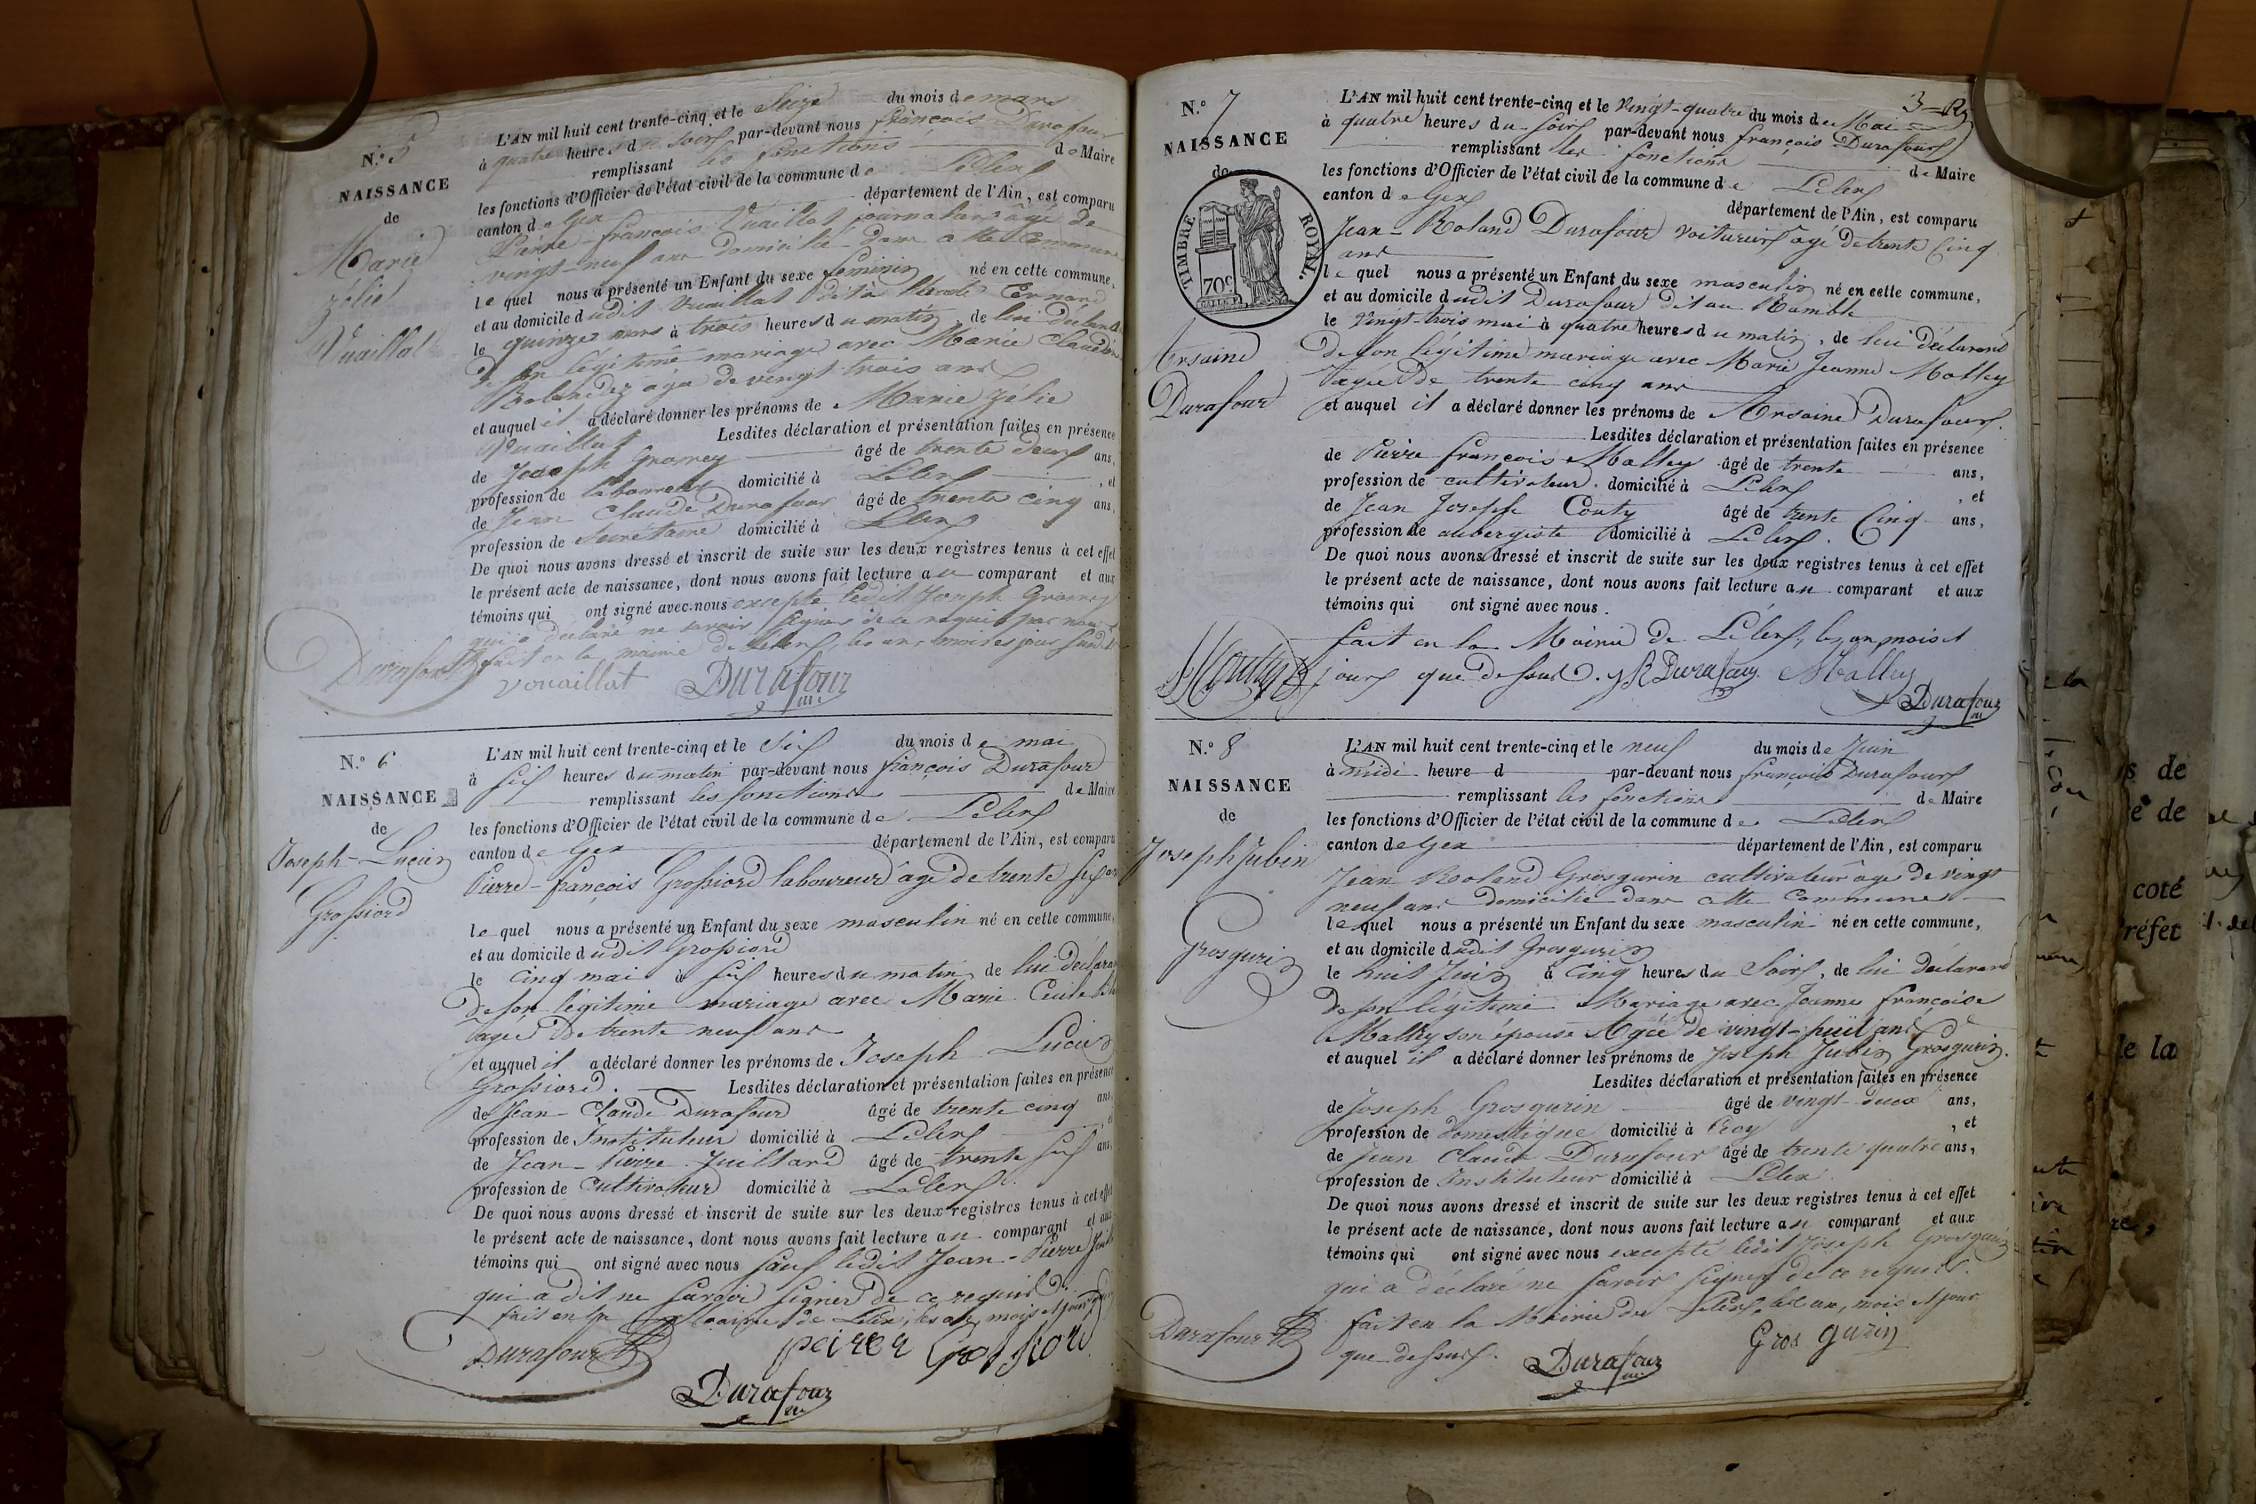 N.° 5
NAISSANCE
de
Marie
zélie
Vuaillat
L'AN mil huit cent trente-cinq et le Seize du mois de mars
à quatre heures du Soir par-devant nous françois Durafour
remplissant les fonctions de Maire
les fonctions d'Officier de l'état civil de la commune de Lélex
canton de Gex département de l'Ain, est comparu
Pierre-françois Vuaillat journalier âgé de
vingt-neuf ans domicilié dans cette commune
le quel nous a présenté un Enfant du sexe féminin né en cette commune,
et au domicile dudit Vuaillat dit à
le quinze mars à trois heures du matin de lui déclarant
de son légitime mariage avec Marie Claudine
âgé de vingt trois ans
et auquel il a déclaré donner les prénoms de Marie zélie
Vuaillat Lesdites déclaration et présentation faites en présence
de Joseph âgé de trente deux ans,
profession de laboureur domicilié à Lélex , et
de Jean Claude Durafour âgé de trente cinq ans,
profession de Secrétaire domicilié à Lélex
De quoi nous avons dressé et inscrit de suite sur les deux registres tenus à cet effet
le présent acte de naissance, dont nous avons fait lecture au comparant et aux
témoins qui ont signé avec nous excepté ledit Joseph
qui a déclaré ne savoir signer de ce requis par nous
fait en la mairie de Lélex, les an, mois et jour
Durafour vouaillat Durafour
N.° 6
NAISSANCE
de
Joseph-Lucien
Grossiord
L'AN mil huit cent trente-cinq et le Six du mois de mai
à six heures du matin par-devant nous françois Durafour
remplissant les fonctions de Maire
les fonctions d'Officier de l'état civil de la commune de Lélex
canton de Gex département de l'Ain, est comparu
Pierre-françois Grossiord laboureur âgé de trente six ans
le quel nous a présenté un Enfant du sexe masculin né en cette commune,
et au domicile dudit Grossiord
le cinq mai à six heures du matin de lui déclarant
de son légitime mariage avec Marie Cecile
âgée de trente neuf ans
et auquel il a déclaré donner les prénoms de Joseph Lucien
Grossiord. Lesdites déclaration et présentation faites en présence
de Jean-Claude Durafour âgé de trente cinq ans,
profession de Instituteur domicilié à Lélex , et
de Jean-Pierre Juillard âgé de trente six ans,
profession de Cultivateur domicilié à Lélex
De quoi nous avons dressé et inscrit de suite sur les deux registres tenus à cet effet
le présent acte de naissance, dont nous avons fait lecture au comparant et aux
témoins qui ont signé avec nous sauf ledit Jean-Pierre
qui a dit ne savoir signer de ce requis
fait en la Mairie de Lélex, les an, mois et jour
Durafour peirer Grossiord
Durafour
3
N.° 7
NAISSANCE
de
TIMBRE ROYAL.
70c
Arsaine
Durafour
L'AN mil huit cent trente-cinq et le vingt-quatre du mois de Mai
à quatre heures du Soir par-devant nous françois Durafour
remplissant les fonctions de Maire
les fonctions d'Officier de l'état civil de la commune de Lélex
canton de Gex département de l'Ain, est comparu
Jean-Roland Durafour voiturier âgé de trente Cinq
ans
le quel nous a présenté un Enfant du sexe masculin né en cette commune,
et au domicile dudit Durafour dit au
le vingt-trois mai à quatre heures du matin, de lui déclarant
de son légitime mariage avec Marie Jeanne Malley
âgée de trente cinq ans
et auquel il a déclaré donner les prénoms de Arsaine Durafour.
Lesdites déclaration et présentation faites en présence
de Pierre françois Malley âgé de trente ans,
profession de cultivateur domicilié à Lélex , et
de Jean Joseph Couty âgé de trente Cinq ans,
profession de aubergiste domicilié à Lélex.
De quoi nous avons dressé et inscrit de suite sur les deux registres tenus à cet effet
le présent acte de naissance, dont nous avons fait lecture au comparant et aux
témoins qui ont signé avec nous.
fait en la Mairie de Lélex, les an mois et
jour que dessus. JR Durafour Malley
Durafour
N.° 8
NAISSANCE
de
Joseph Jubin
Grosgurin
L'AN mil huit cent trente-cinq et le neuf du mois de Juin
à midi heure d par-devant nous françois Durafour
remplissant les fonctions de Maire
les fonctions d'Officier de l'état civil de la commune de Lélex
canton de Gex département de l'Ain, est comparu
Jean Roland Grosgurin cultivateur âgé de vingt
neuf ans domicilié dans cette Commune
le quel nous a présenté un Enfant du sexe masculin né en cette commune,
et au domicile dudit Grosgurin
le huit Juin à Cinq heures du Soir, de lui déclarant
de son légitime Mariage avec Jeanne françoise
Malley son épouse Agée de vingt-huit ans
et auquel il a déclaré donner les prénoms de Joseph Jubin Grosgurin.
Lesdites déclaration et présentation faites en présence
de Joseph Grosgurin âgé de vingt-deux ans,
profession de domestique domicilié à , et
de Jean Claude Durafour âgé de trente quatre ans,
profession de Instituteur domicilié à Lélex
De quoi nous avons dressé et inscrit de suite sur les deux registres tenus à cet effet
le présent acte de naissance, dont nous avons fait lecture au comparant et aux
témoins qui ont signé avec nous excepté ledit Joseph Grosgurin
qui a déclaré ne savoir signer de ce requis.
fait en la Mairie de Lélex, les an, mois et jour
que dessus.
Durafour Durafour Gros gurin